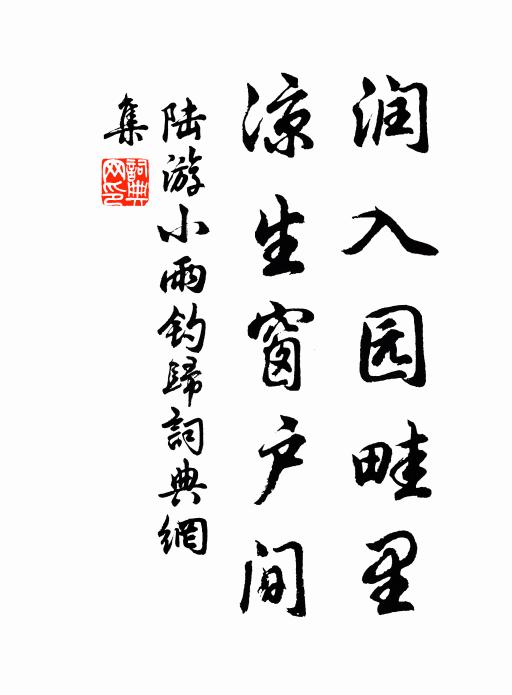 润入园畦里
凉生窗户间
陆游小雨钓归詞典網
集
詞典
网印